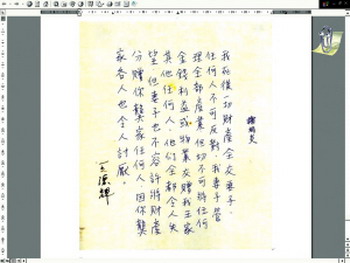 謝炳炎
我死後一切財產全交妻子.
任何人不可反對.我妻子管
理全部產業但切不可將任何
金錢利益或物業交贈我王家
其他任何人.他們全部令人失
望但妻子也不容許將財產
分贈你龔家任何人.因你龔
家各人也令人討厭.
王德輝